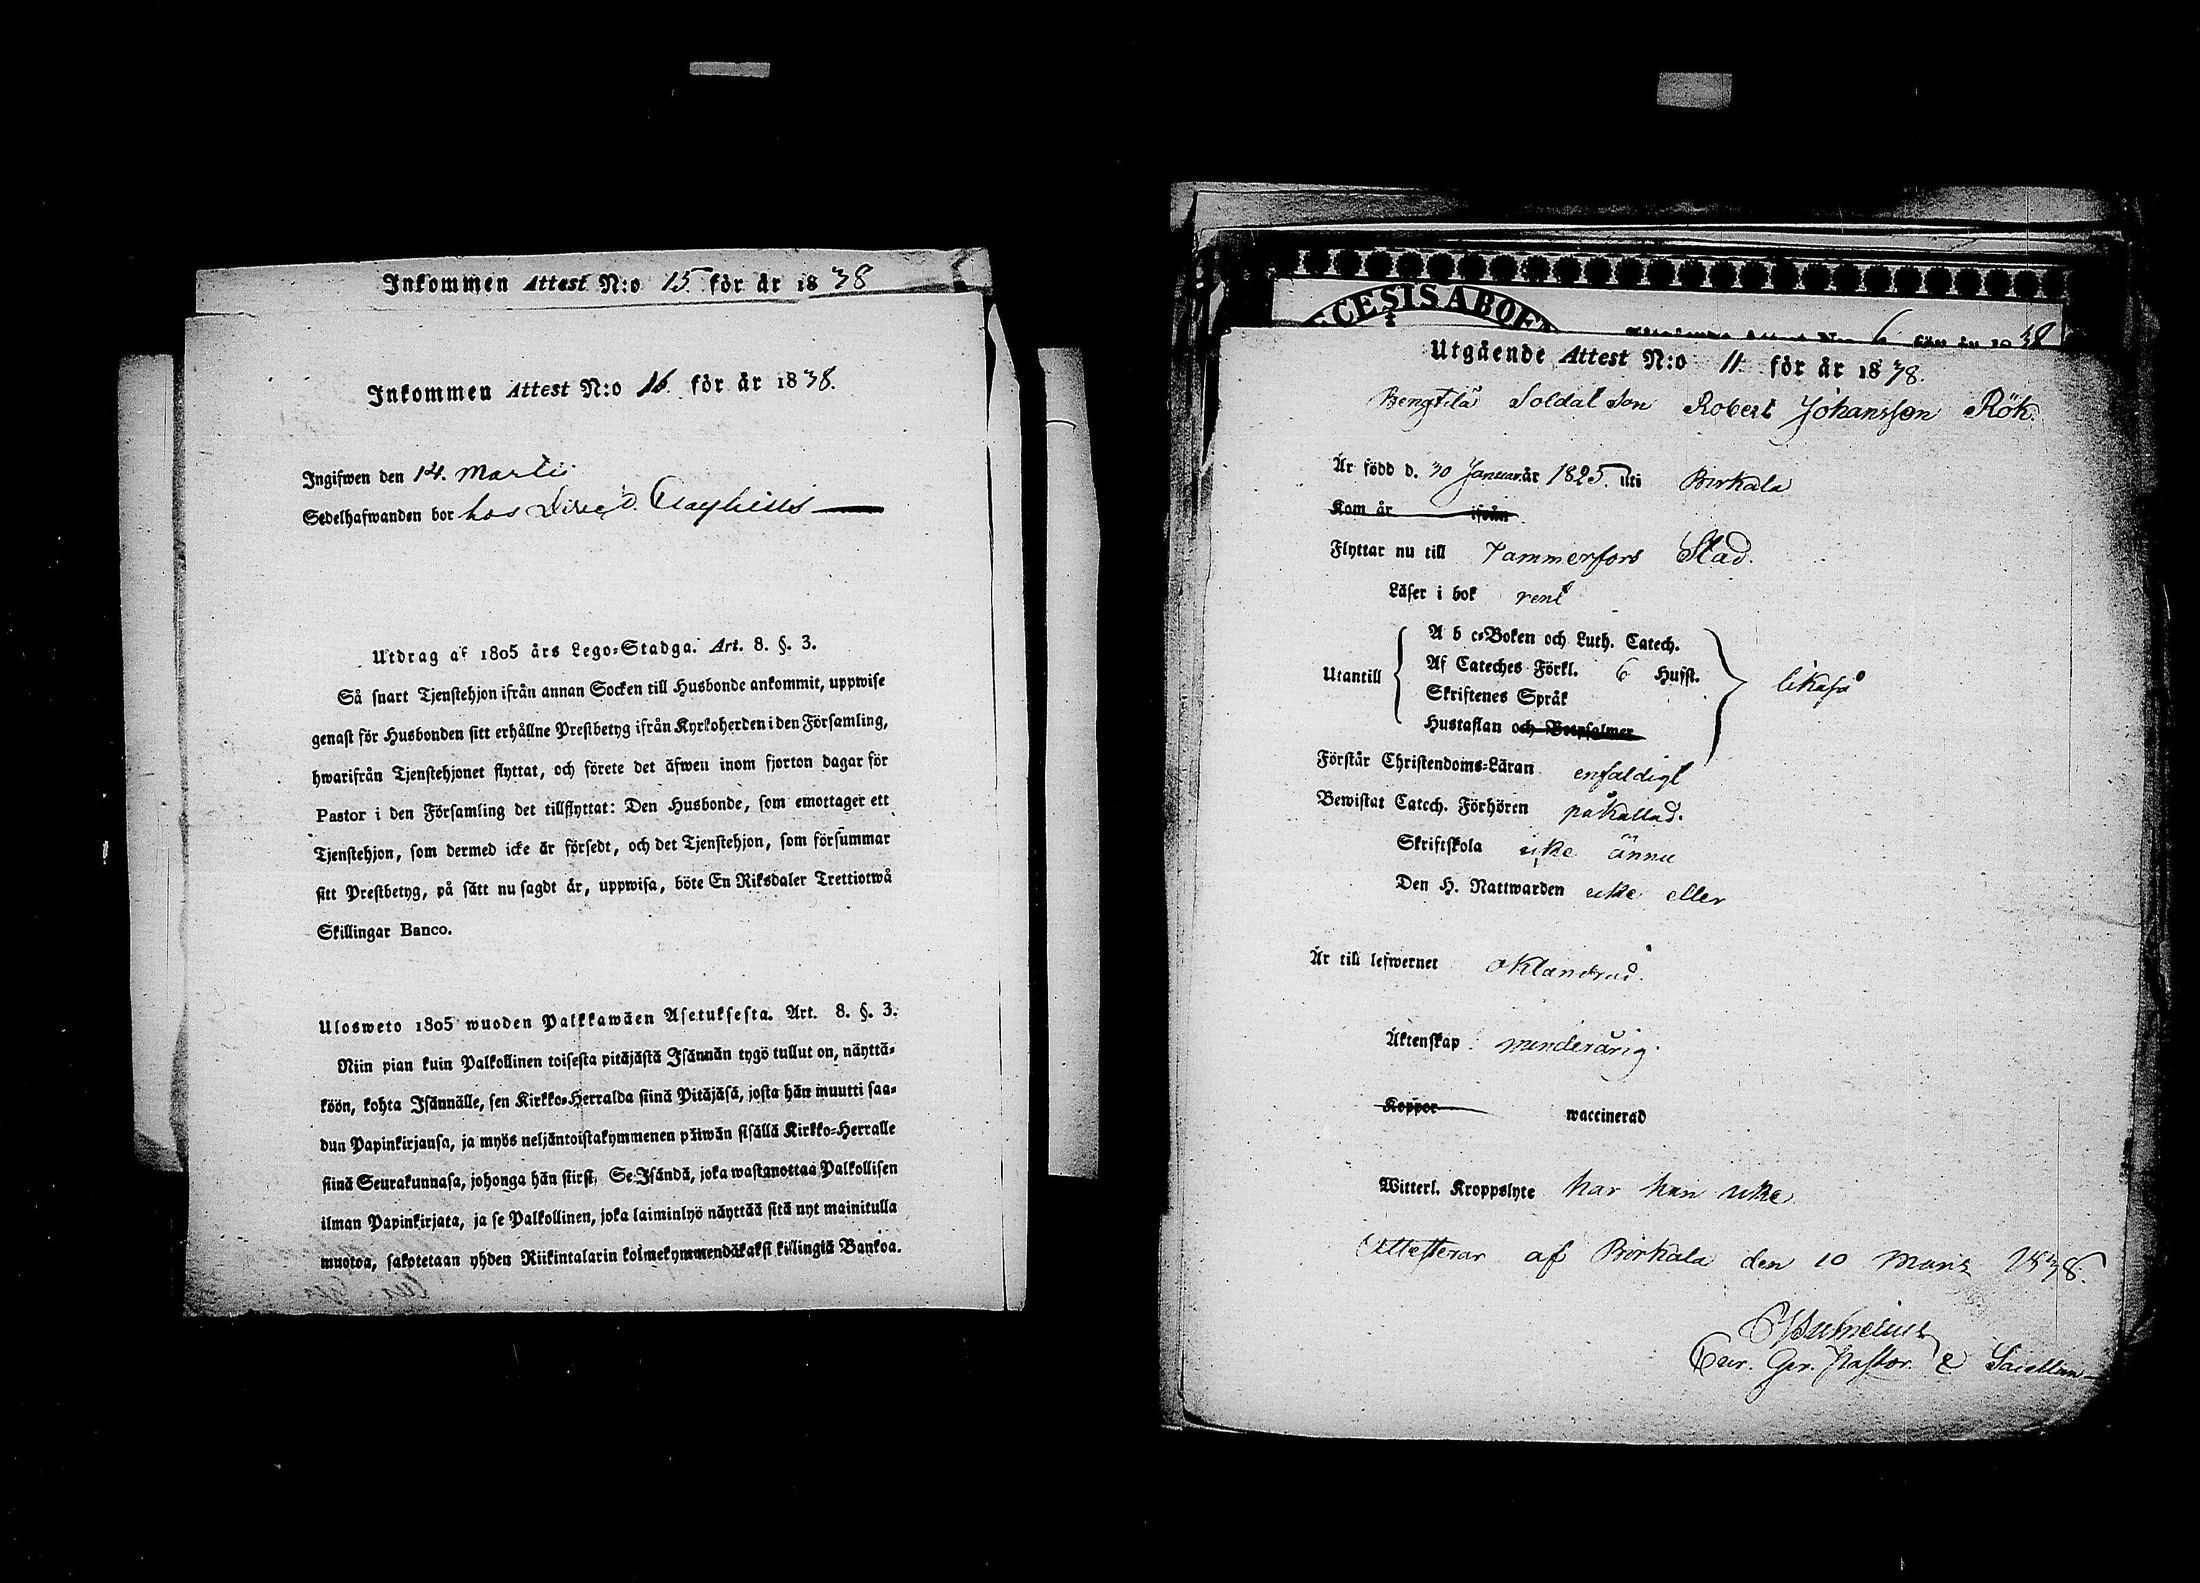 Inkommen Attest N:o 15 för år 1838
Inkommen Attest N:o 16. för år 1838.
Ingifwen den 14. Martii
Sedelhafwanden bor hos Direct. Clayhills
Utdrag af 1805 års Lego-Stadga. Art. 8. §. 3.
Så snart Tjenstehjon ifrån annan Socken till Husbonde ankommit, uppwise
genast för Husbonden sitt erhållne Prestbetyg ifrån Kyrkoherden i den Församling,
hwarifrån Tjenstehjonet flyttat, och förete det äfwen inom fjorton dagar för
Pastor i den Församling det tillflyttat: Den Husbonde, som emottager ett
Tjenstehjon, som dermed icke är försedt, och det Tjenstehjon, som försummar
sitt Prestbetyg, på sätt nu sagdt är, uppwisa, böte En Riksdaler Trettiotwå
Skillingar Banco.
Ulosweto 1805 wuoden Palkkawäen Asetuksesta. Art. 8. §. 3.
Niin pian kuin Palkollinen toisesta pitäjästä Isännän tygö tullut on, näyttä-
köön, kohta Isännälle, sen Kirkko-Herralda siinä Pitäjäsä, josta hän muutti saa-
dun Papinkirjansa, ja myös neljäntoistakymmenen päiwän sisällä Kirkko-Herralle
siinä Seurakunnasa, johonga hän siirsi. Se Isändä, joka wastanottaa Palkollisen
ilman Papinkirjata, ja se Palkollinen, joka laiminlyö näyttää sitä nyt mainitulla
muotoa, sakotetaan yhden Riikintalarin kolmekymmendäkaksi killingiä Bankoa.
CESIS ABOE
6 för år 1838
Utgående Attest N:o 11. för år 1838.
Bengtilä Soldat Son Robert Johansson Rök.
Är född d. 30 Januari år 1825. uti Birkala
Kom år ifrån
Flyttar nu till Tammerfors Stad.
Läser i bok rent
A b c-Boken och Luth. Catech.
Utantill Af Cateches Förkl. 6 Hufst. likaså
Skriftenes Språk
Hustaflan och Botpsalmer
Förstår Christendoms-Läran enfaldigt
Bewistat Catech. Förhören påkallad.
Skriftskola icke ännu
Den H. Nattwarden icke eller
Är till lefwernet oklandrad.
Äktenskap minderårig.
Koppor waccinerad
Witterl. Kroppslyte har han icke
Attesterar af Birkala den 10 Mars 1838.
Cur. Ger. Pastor. & Sacellan